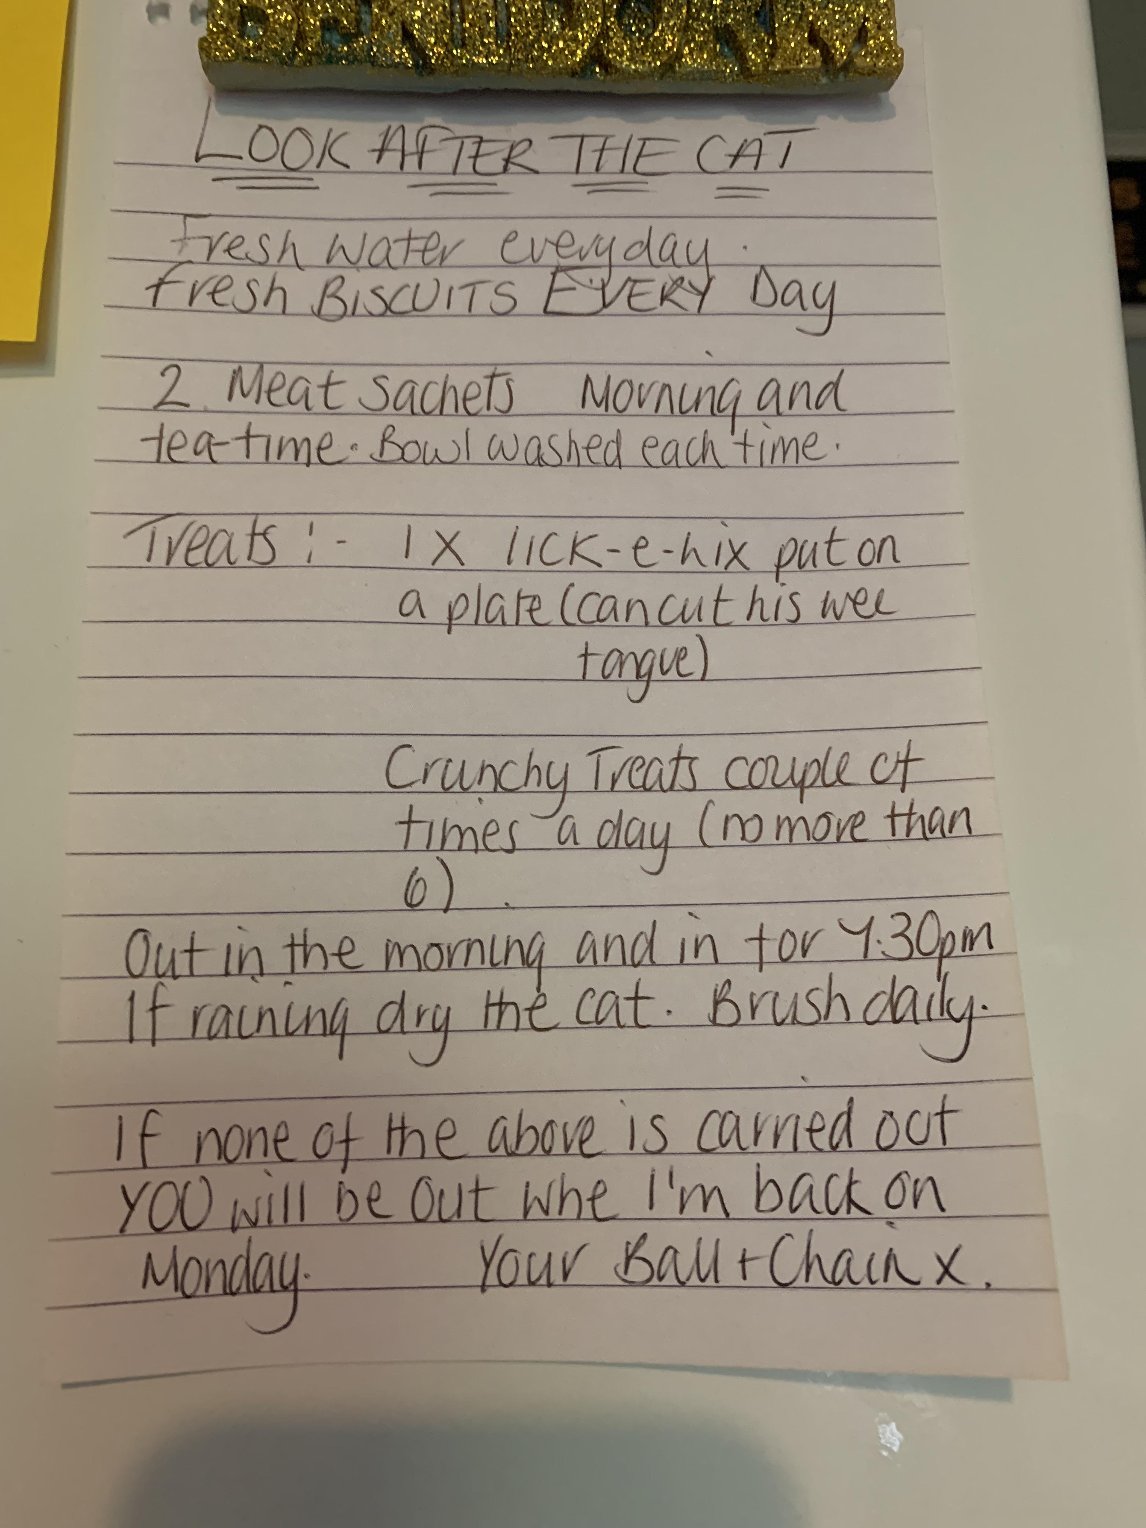 BENIDORM
LOOK AFTER THE CAT
Fresh water everyday.
fresh BISCUITS EVERY Day
2 Meat sachets Morning and
tea-time. Bowl washed each time.
Treats :- 1 X lick-e-hix put on
a plate (can cut his wee
tongue)
Crunchy Treats couple of
times a day (no more than
6).
Out in the morning and in for 4.30pm
If raining dry the cat. Brush daily.
If none of the above is carried out
YOU will be out whe I'm back on
Monday. Your Ball + Chain x.